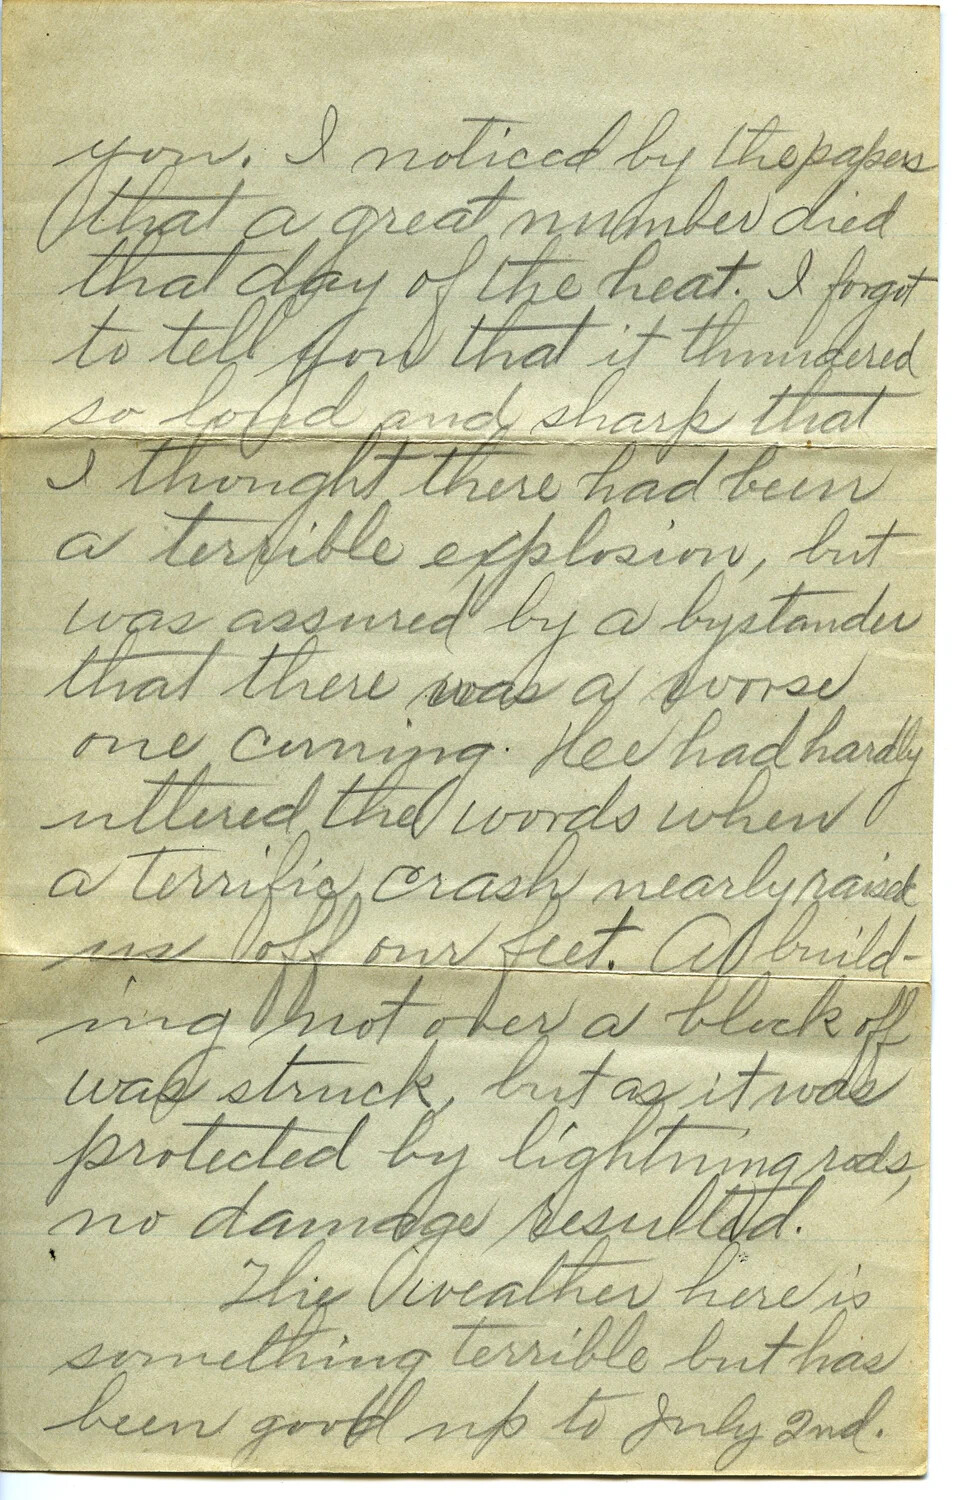 you. I noticed by the papers
that a great number died
that day of the heat. I forgot
to tell you that it thundered
so loud and sharp that
I thought there had been
a terrible explosion, but
was assured by a bystander
that there was a worse
one coming. He had hardly
uttered the words when
a terrific crash nearly raised
us off our feet. A build-
ing not over a block off
was struck, but as it was
protected by lightning rods,
no damage resulted.
The weather here is
something terrible but has
been good up to July 2nd.